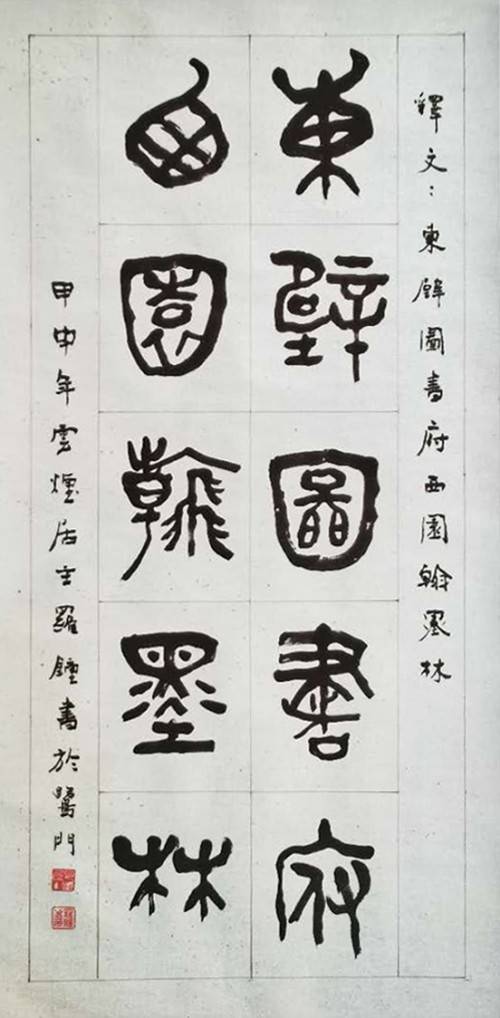 釋文：東壁圖書府西園翰墨林
東壁圖書府
西園翰墨林
甲申年雲煙居主羅鍾書於鷺門